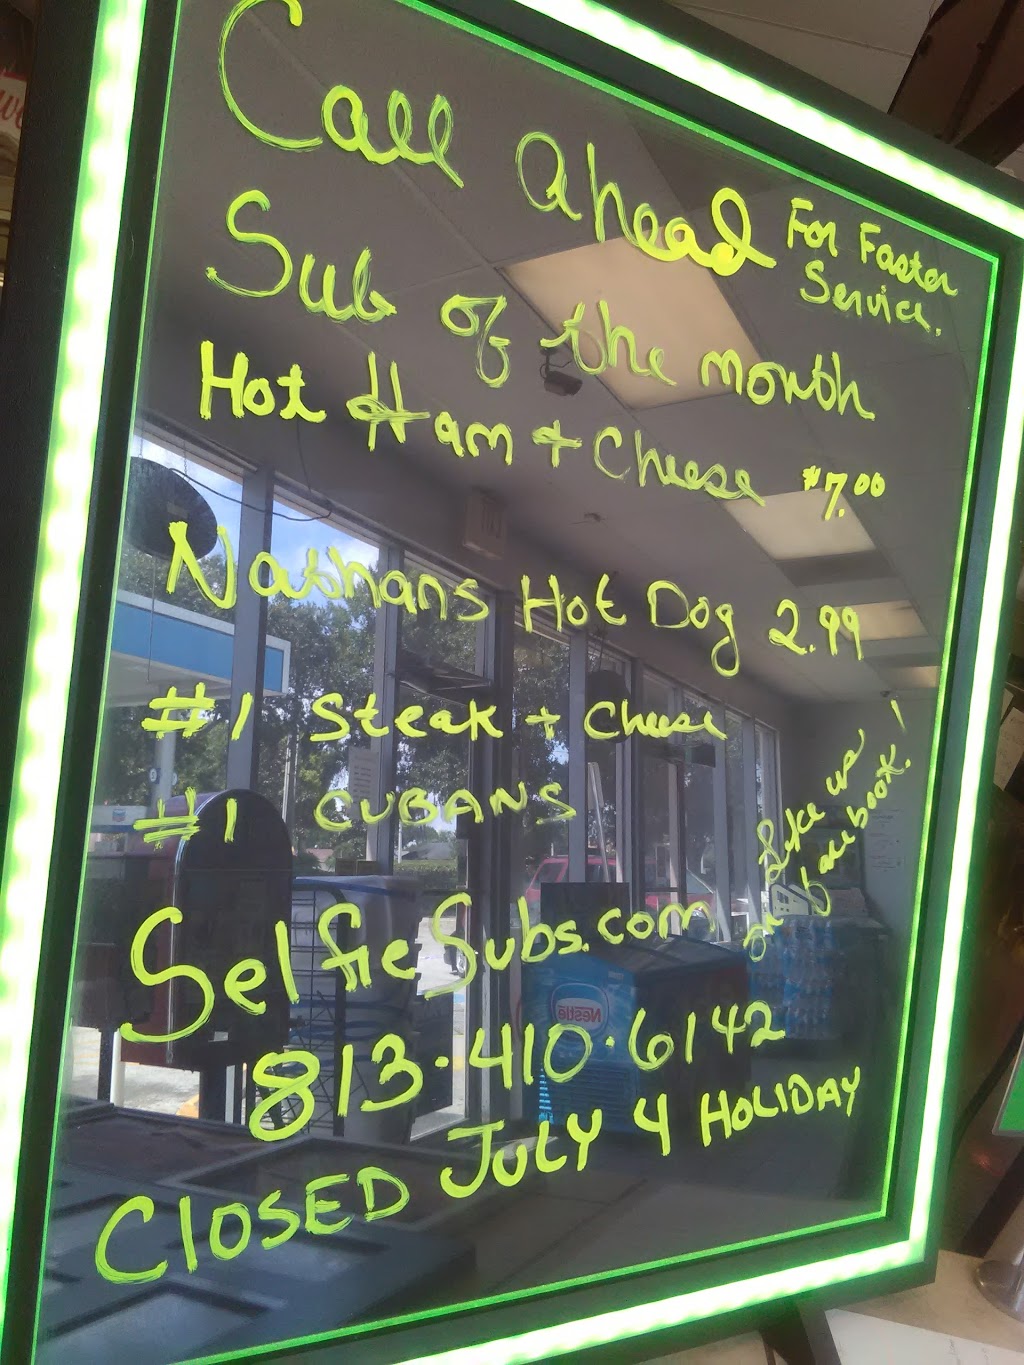 Call Ahead For Faster Service.
Sub of the month
Hot Ham + Cheese $7.00
Nathans Hot Dog 2.99
#1 Steak + Cheese
#1 CUBANS
Like us on facebook!
SelfieSubs.com
813·410·6142
CLOSED JULY 4 HOLIDAY
Nestle